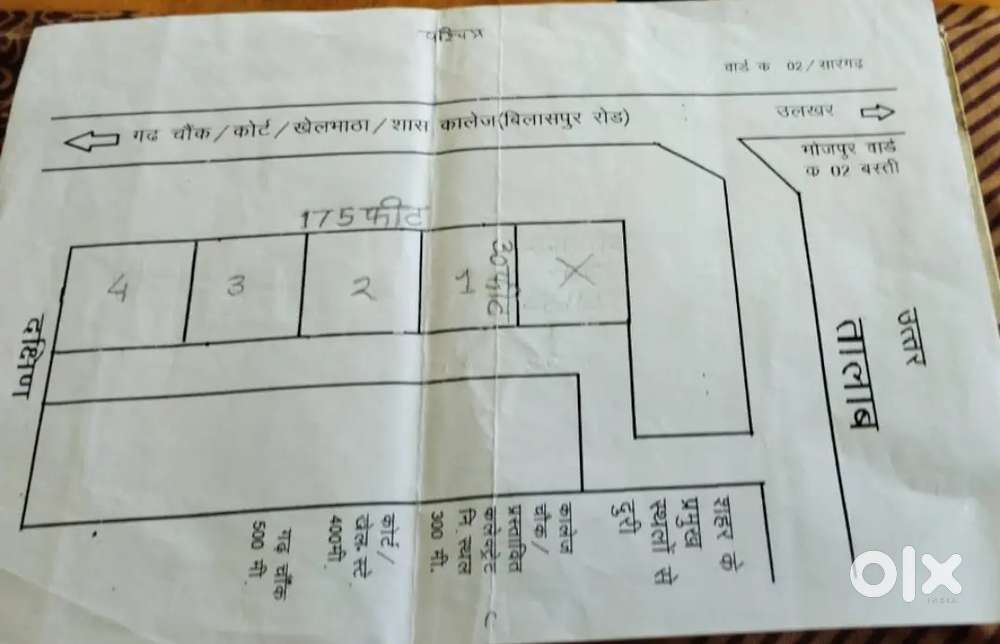 पश्चिम
वार्ड क 02/सारगढ
गढ चौंक/कोर्ट/खेलभाठा/शास कालेज(बिलासपुर रोड)
उलखर
भोजपुर वार्ड
क 02 बस्ती
175 फीट
4
3
2
1
30 फीट
X
दक्षिण
उत्तार
तालाब
शहर के
प्रमुख
स्थलों से
दूरी
कालेज
चौक/
प्रस्तावित
कलेक्ट्रेट
मि. स्थल
300 मी.
कोर्ट/
खेल. स्टे
400मी.
गढ चौंक
500 मी.
OLX
INDIA